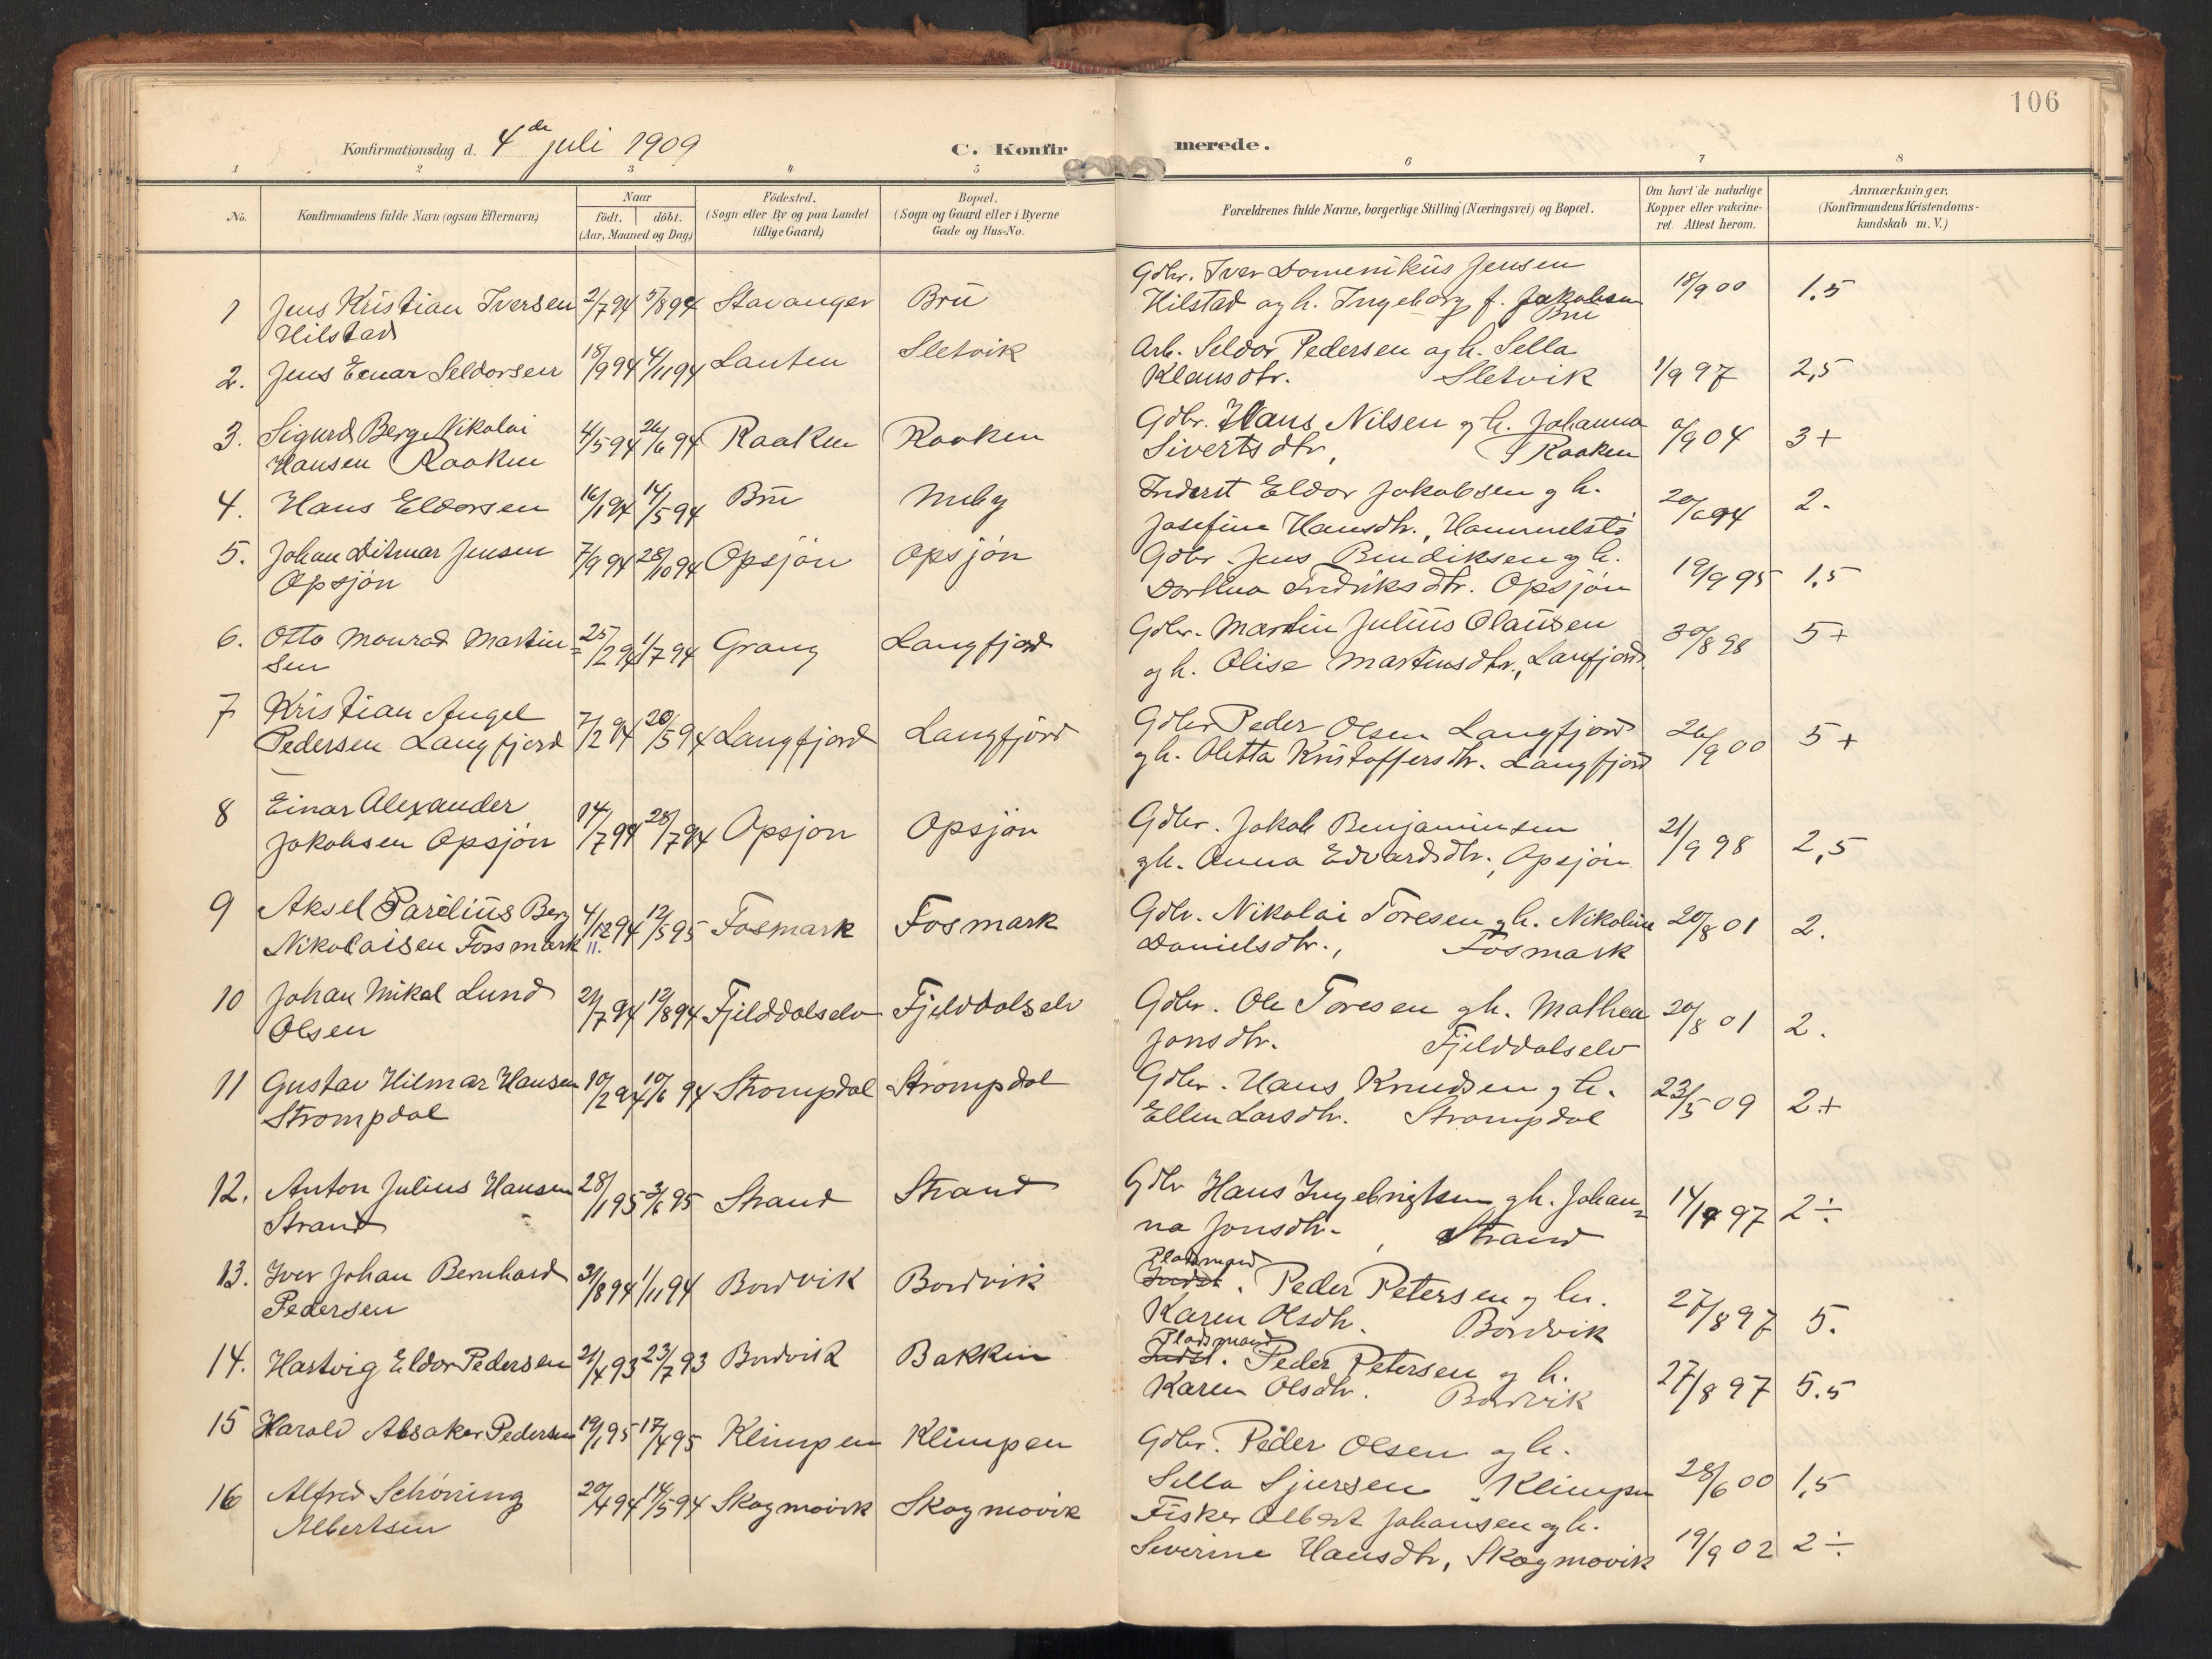 106
Konfirmationsdag d. 4de juli 1909 C. Konfirmerede.
1 2 3 4 5 6 7 8
No. Konfirmandens fulde Navn (ogsaa Efternavn) Naar født. døbt. (Aar, Maaned og Dag) Fødested. (Sogn eller By og paa Landet tillige Gaard) Bopæl. (Sogn og Gaard eller i Byerne Gade og Hus-No. Forældrenes fulde Navne, borgerlige Stilling (Næringsvei) og Bopæl. Om havt de naturlige Kopper eller vakcineret. Attest herom. Anmærkninger. (Konfirmandens Kristendomskundskab m.V.)
1 Jens Kristian Iversen 2/7 94 5/8 94 Stavanger Brü Gdbr. Iver Domenikus Jensen
Hilstad Hilstad og h. Ingeborg f. Jakobsen Bru 18/9 00 1,5
2. Jens Einar Seldorsen 18/9 94 4/11 94 Lauten Sletvik Arb. Seldor Pedersen og h. Sella
Klausdtr. Sletvik 1/9 97 2,5
3. Sigurd Berg Nikolai 4/5 94 24/6 94 Raaken Raaken Gdbr. Hans Nilsen og h. Johanna
Hansen Raaken Sivertsdtr, Raaken /9 04 3+
4. Hans Eldorsen 16/1 94 14/5 94 Bru Meby Inderst Eldor Jakobsen og h.
Josefine Hansdtr., 20/6 94 2.
5. Johan Ditmar Jensen 7/9 94 28/10 94 Opsjön Opsjön Gdbr. Jens Bendiksen og h.
Opsjön Dorthea Fredriksdtr. Opsjön 19/9 95 1.5
6. Otto Monrad Martin= 25/2 94 1/7 94 Grang Langfjord Gdbr. Martin Julius Olausen
sen og h. Olise Martinsdtr., Lanfjord 30/8 98 5+
7 Kristian Angel 7/2 94 20/5 94 Langfjord Langfjord Gdbr Peder Olsen Langfjord
Pedersen Langfjord og h. Oletta Kristoffersdtr. Langfjord 26/9 00 5+
8 Einar Alexander 14/7 94 28/7 94 Opsjon Opsjön Gdbr. Jakob Benjaminsen
Jakobsen Opsjön og h. Anna Edvardsdtr., Opsjön 21/9 98 2,5
9 Aksel Parelius Berg 4/12 94 12/5 95 Fosmark Fosmark Gdbr. Nikolai Toresen og h. Nikoline
Nikolaisen Fossmark 11. Danielsdtr., Fosmark 20/8 01 2.
10 Johan Mikal Lund 21/7 94 12/8 94 Fjelddalselv Fjelddalselv Gdbr. Ole Toresen og h. Mathea
Olsen Jonsdtr. Fjelddalselv 20/8 01 2.
11 Gustav Hilmar Hansen 10/2 94 10/6 94 Strompdal Strompdal Gdbr. Hans Knudsen og h.
Strompdal Ellen Larsdtr. Strompdal 23/5 09 2+
12. Anton Julius Hansen 28/1 95 3/6 95 Strand Strand Gdbr Hans Ingebrigtsen og h. Johan=
Strand na Jonsdtr. , Strand 14/9 97 2÷
13. Iver Johan Bernhard 31/8 94 1/11 94 Bordvik Bordvik Pladsmand Indst. Peder Petersen og hu.
Pedersen Karen Olsdtr. Bordvik 27/8 97 5.
14. Hartvig Eldor Pedersen 21/4 93 23/7 93 Bordvik Bakken Pladsmand Indst. Peder Petersen og h.
Karen Olsdtr. Bordvik 27/8 97 5.5
15 Harald Absaker Pedersen 19/1 95 17/4 95 Klimpen Klimpen Gdbr. Peder Olsen og h.
Sella Sjursen Klimpen 28/6 00 1,5
16 Alfred Schöning 20/4 94 14/5 94 Skogmovik Skogmovik Fisker Albert Johansen og h.
Albertsen Severine Hansdtr, Skogmovik 19/9 02 2÷